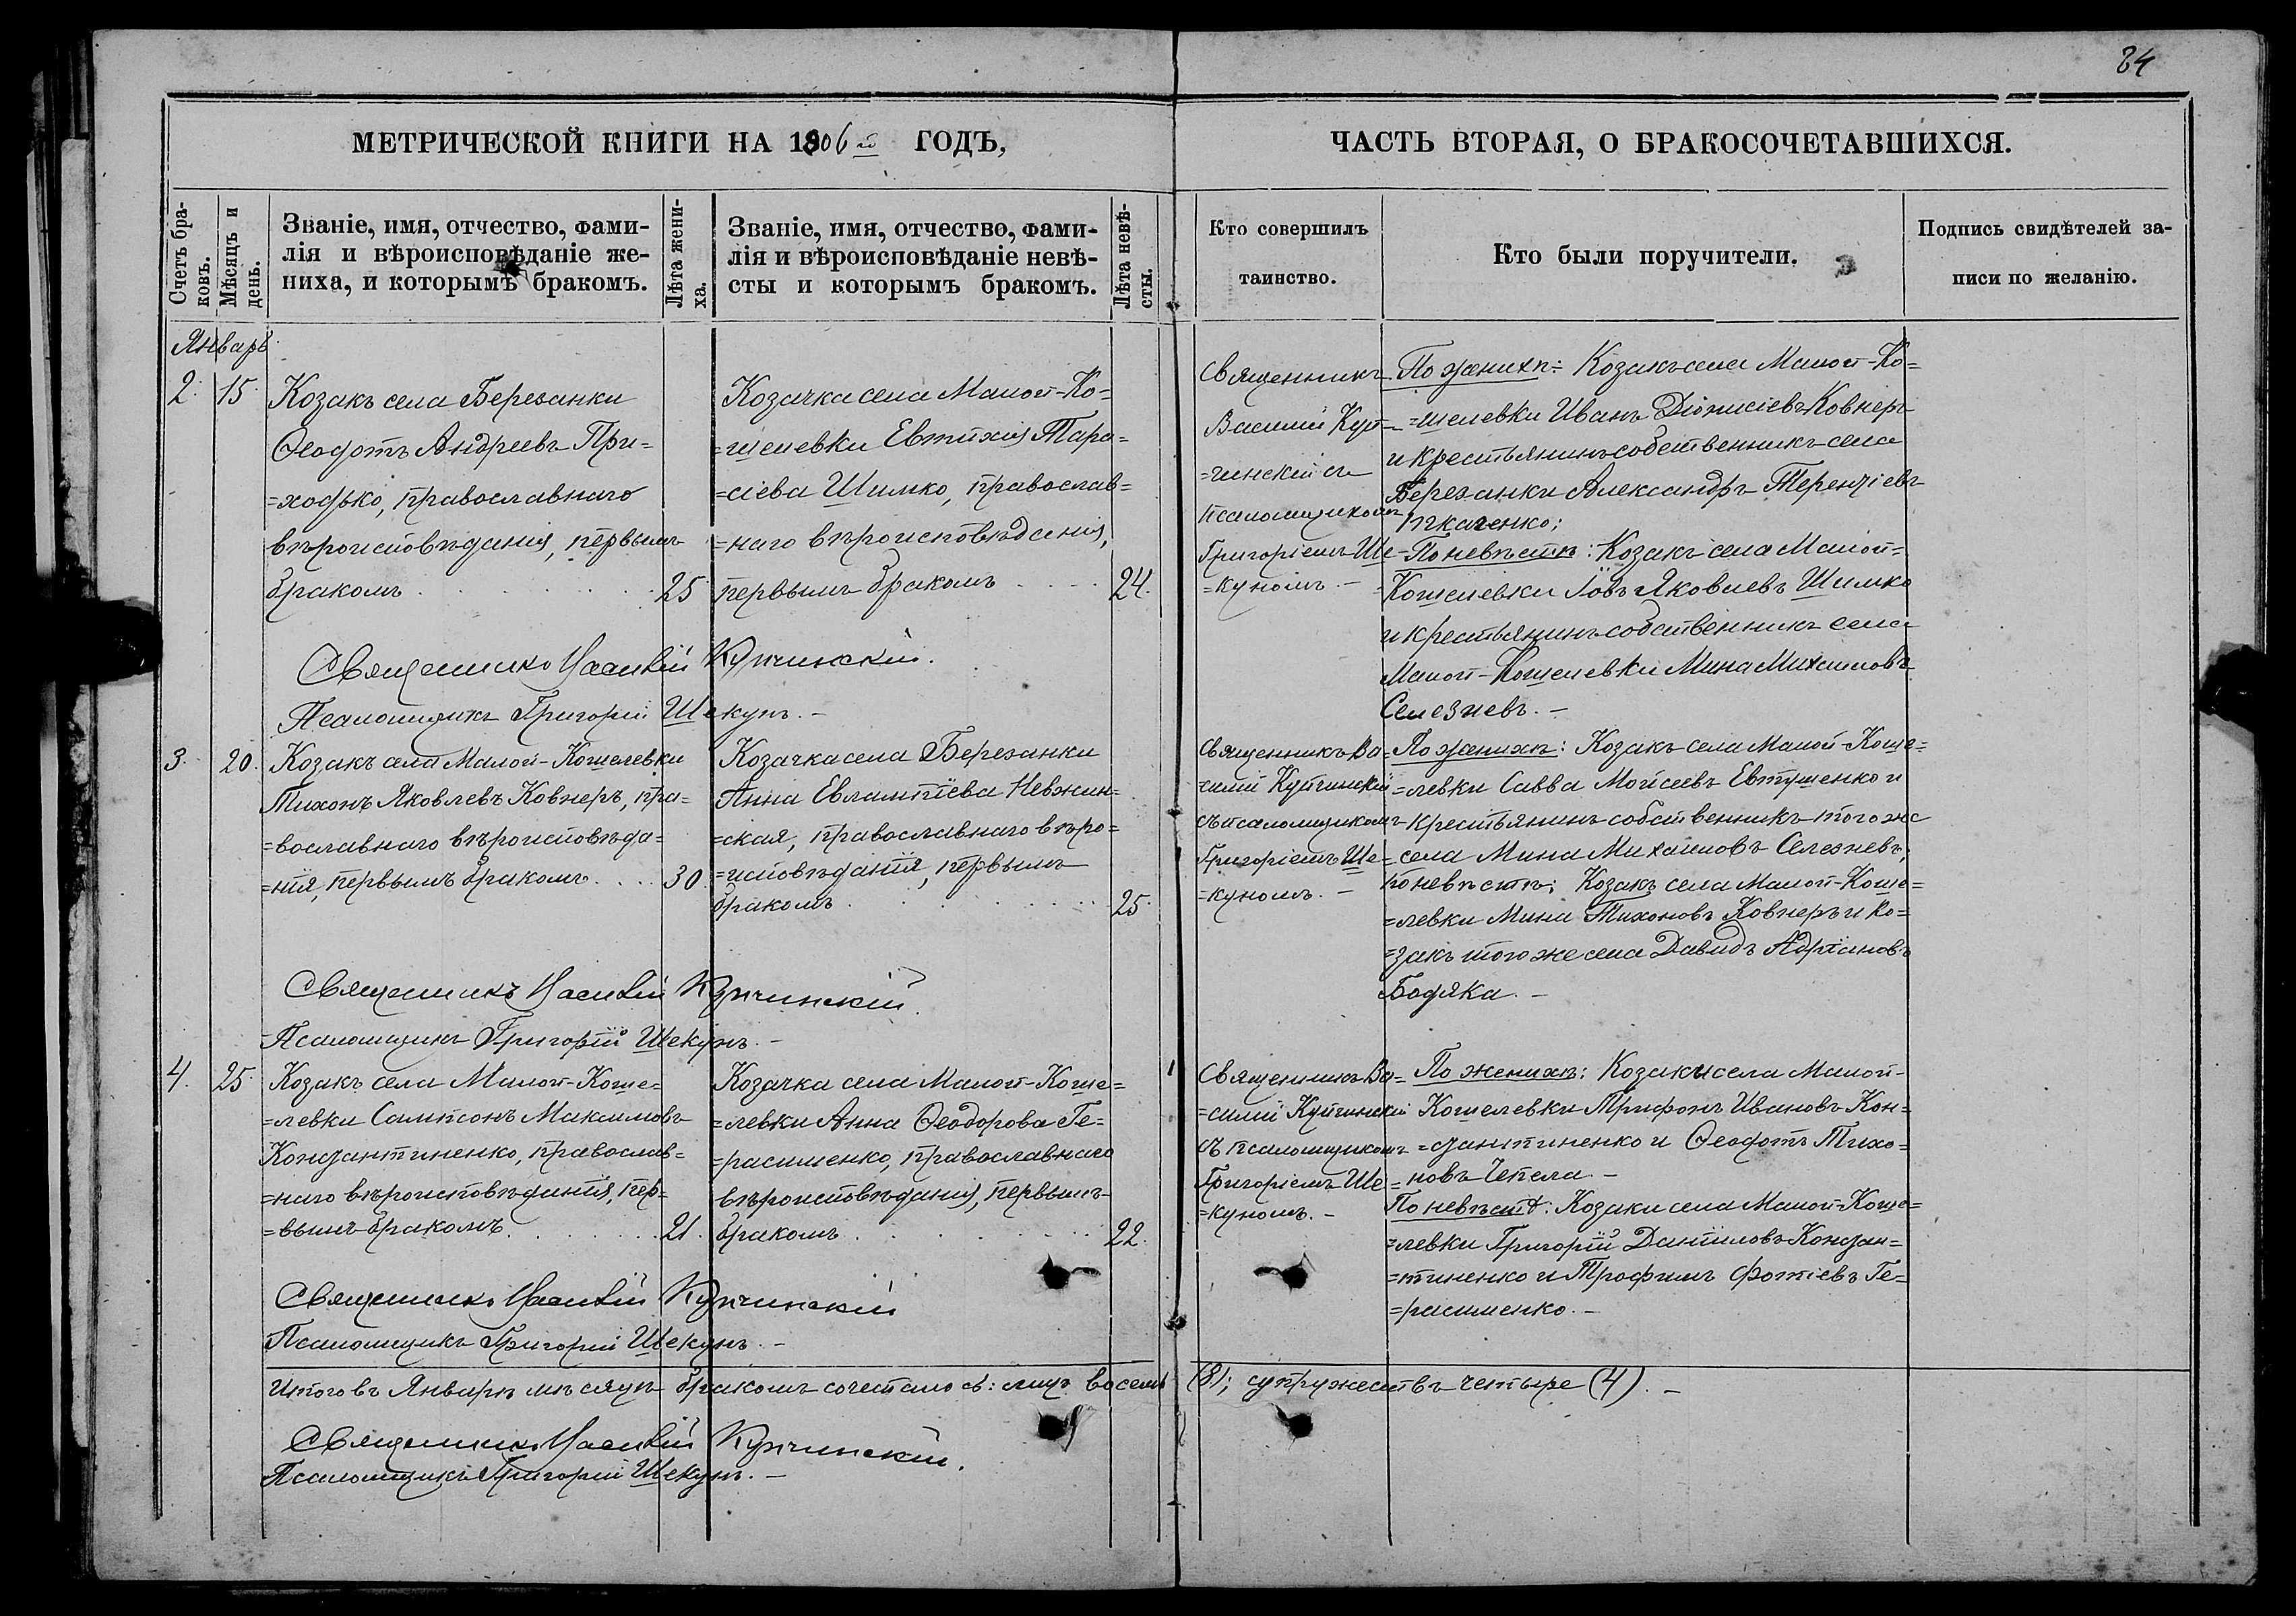 84
МЕТРИЧЕСКОЙ КНИГИ НА 1906й ГОДЪ,
ЧАСТЬ ВТОРАЯ, О БРАКОСОЧЕТАВШИХСЯ.
Счетъ бра-
ковъ.
Мѣсяцъ и
день.
Званіе, имя, отчество, фами-
лія и вѣроисповѣданіе же-
ниха, и которымъ бракомъ.
Лѣта жени-
ха.
Званіе, имя, отчество, фами-
лія и вѣроисповѣданіе невѣ-
сты и которымъ бракомъ.
Лѣта невѣ-
сты.
Кто совершилъ
таинство.
Кто были поручители.
Подпись свидѣтелей за-
писи по желанію.
Январь
2. 15.
Козакъ села Березанки
Ѳеодотъ Андреевъ При=
=ходько, православнаго
вѣроисповѣданія, первымъ
бракомъ . . . . . . . 25
Козачка села Малой-Ко=
=шелевки Евтихія Тара=
=сіева Шимко, православ=
=наго вѣроисповѣданія,
первымъ бракомъ . . . . 24.
Священникъ
Василій Куп=
=чинскій съ
псаломщикомъ
Григоріемъ Ше=
=куномъ. –
По женихѣ: Козакъ села Малой-Ко=
=шелевки Иванъ Діонисіевъ Ковнеръ
и крестьянинъ собственникъ села
Березанки Александръ Терентіевъ
Ткаченко;
По невѣстѣ: Козакъ села Малой-
Кошелевки Іовъ Яковлевъ Шимко
и крестьянинъ собственникъ села
Малой-Кошелевки Мина Михаиловъ
Селезневъ. –
Священникъ Василій Купчинскій.
Псаломщикъ Григорій Шекунъ. –
3. 20.
Козакъ села Малой-Кошелевки
Тихонъ Яковлевъ Ковнеръ, пра=
=вославнаго вѣроисповѣда=
=нія, первымъ бракомъ . . . . 30.
Козачка села Березанки
Анна Евлампіева Невжин=
=ская, православнаго вѣро=
=исповѣданія, первымъ
бракомъ . . . . . . . 25.
Священникъ Ва=
силій Купчинскій
съ псаломщикомъ
Григоріемъ Ше=
=куномъ. –
По женихѣ: Козакъ села Малой-Коше=
=левки Савва Моисеевъ Евтушенко и
крестьянинъ собственникъ того же
села Мина Михаиловъ Селезневъ;
по невѣстѣ: Козакъ села Малой-Коше=
=левки Мина Тихоновъ Ковнеръ и Ко=
=закъ того же села Давидъ Адріановъ
Бодяка. –
Священникъ Василій Купчинскій.
Псаломщикъ Григорій Шекунъ. –
4. 25.
Козакъ села Малой-Коше=
=левки Сампсонъ Максимовъ
Константиненко, православ=
=наго вѣроисповѣданія, пер=
=вымъ бракомъ . . . . . . . 21.
Козачка села Малой-Коше=
=левки Анна Ѳеодорова Ге=
=расименко, православнаго
вѣроисповѣданія, первымъ
бракомъ . . . . . . . 22.
Священникъ Ва=
=силій Купчинскій
съ псаломщикомъ
Григоріемъ Ше=
=куномъ. –
По женихѣ: Козаки села Малой-
Кошелевки Трифонъ Ивановъ Кон=
=стантиненко и Ѳеодотъ Тихо=
=новъ Чепела –
По невѣстѣ: Козаки села Малой-Коше=
=левки Григорій Даніиловъ Констан=
=тиненко и Трофимъ Фотіевъ Ге=
=расименко. –
Священникъ Василій Купчинскій
Псаломщикъ Григорій Шекунъ. –
Итого въ Январѣ мѣсяцѣ бракомъ сочеталось: лицъ восемь (8); супружествъ четыре (4). –
Священникъ Василій Купчинскій.
Псаломщикъ Григорій Шекунъ. –